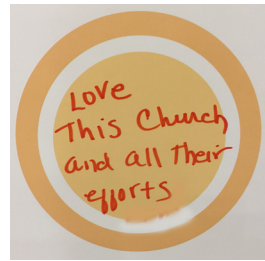 Love
This Church
and all Their
efforts